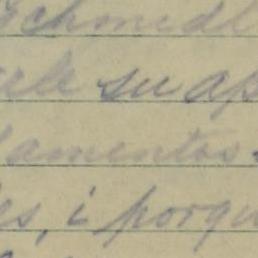 Schmidl
ele su ap
lamentos
es, i porqu